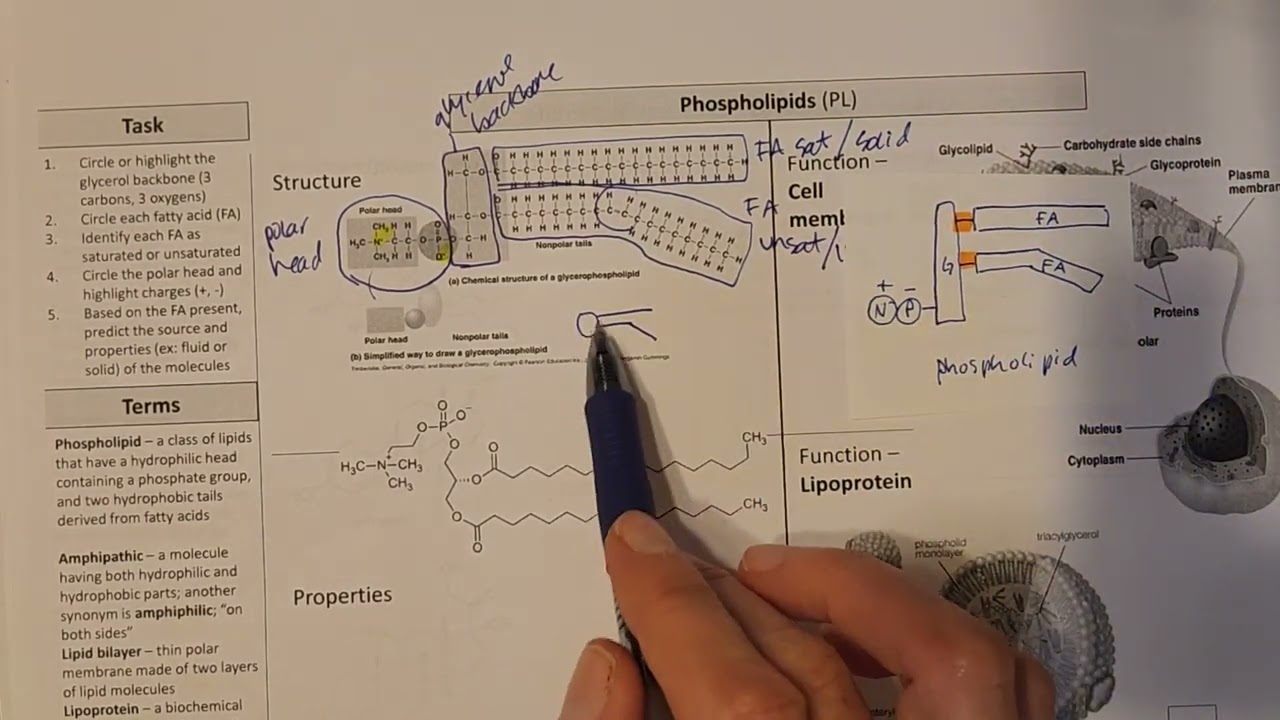 Phospholipids (PL)
Task
1. Circle or highlight the
glycerol backbone (3
carbons, 3 oxygens)
2. Circle each fatty acid (FA)
3. Identify each FA as
saturated or unsaturated
4. Circle the polar head and
highlight charges (+, -)
5. Based on the FA present,
predict the source and
properties (ex: fluid or
solid) of the molecules
Terms
Phospholipid – a class of lipids
that have a hydrophilic head
containing a phosphate group,
and two hydrophobic tails
derived from fatty acids
Amphipathic – a molecule
having both hydrophilic and
hydrophobic parts; another
synonym is amphiphilic; "on
both sides"
Lipid bilayer – thin polar
membrane made of two layers
of lipid molecules
Lipoprotein – a biochemical
glycerol
backbone
Structure
polar
head
Polar head
FA sat/solid
FA
unsat/
Nonpolar tails
(a) Chemical structure of a glycerophospholipid
Polar head
Nonpolar tails
(b) Simplified way to draw a glycerophospholipid
O
O P O⁻
O
H₃C–N⁺–CH₃
CH₃
O
O
CH₃
O
O
CH₃
Properties
Function –
Cell
Glycolipid
Carbohydrate side chains
Glycoprotein
Plasma
G
FA
FA
+ −
N P
phospholipid
Proteins
olar
Nucleus
Cytoplasm
Function –
Lipoprotein
phospholid
monolayer
triacylglycerol